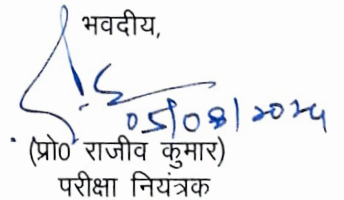 भवदीय,
05/08/2024
(प्रो0 राजीव कुमार)
परीक्षा नियंत्रक